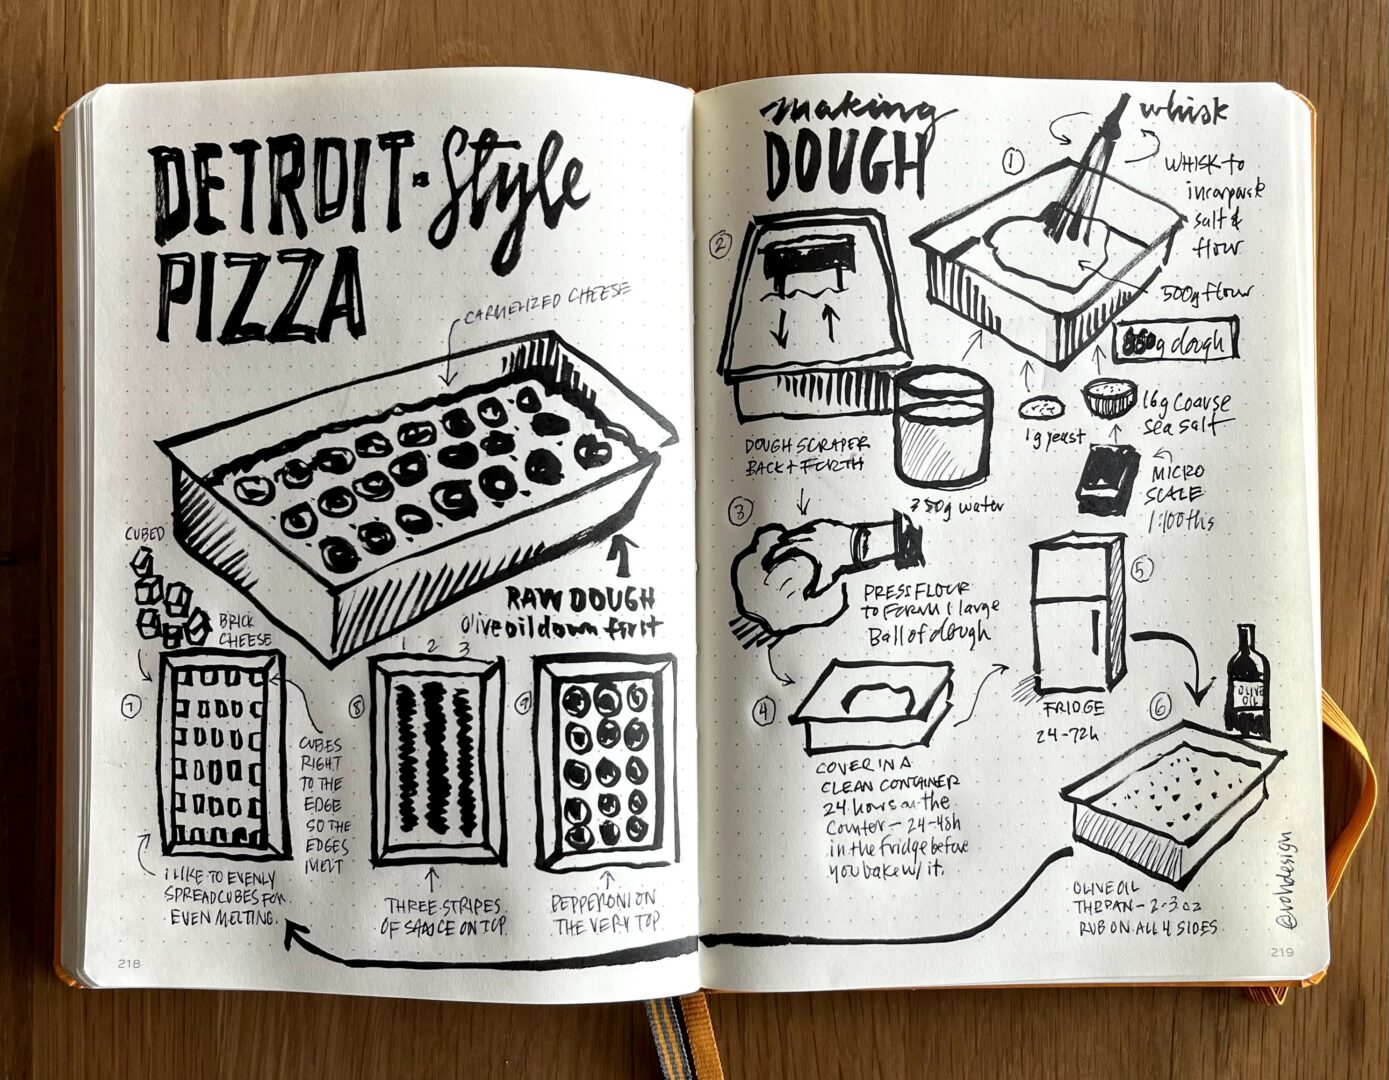 DETROIT-Style
PIZZA
CARMELIZED CHEESE
RAW DOUGH
olive oil down first
CUBED
BRICK
CHEESE
7
CUBES
RIGHT
TO THE
EDGE
SO THE
EDGES
MELT
I LIKE TO EVENLY
SPREAD CUBES FOR
EVEN MELTING.
8
1 2 3
THREE STRIPES
OF SAUCE ON TOP.
9
PEPPERONI ON
THE VERY TOP.
218
making
DOUGH
1
whisk
WHISK to
incorporate
salt &
flour
500g flour
g dough
1g yeast
16g coarse
sea salt
MICRO
SCALE
1:100ths
350g water
2
DOUGH SCRAPER
BACK + FORTH
3
PRESS FLOUR
to FORM 1 large
Ball of dough
4
COVER IN A
CLEAN CONTAINER
24 hours on the
counter - 24-48h
in the fridge before
you bake w/ it.
5
FRIDGE
24-72h
6
OLIVE
OIL
OLIVE OIL
THE PAN - 2-3 oz
RUB ON ALL 4 SIDES.
@rohdesign
219